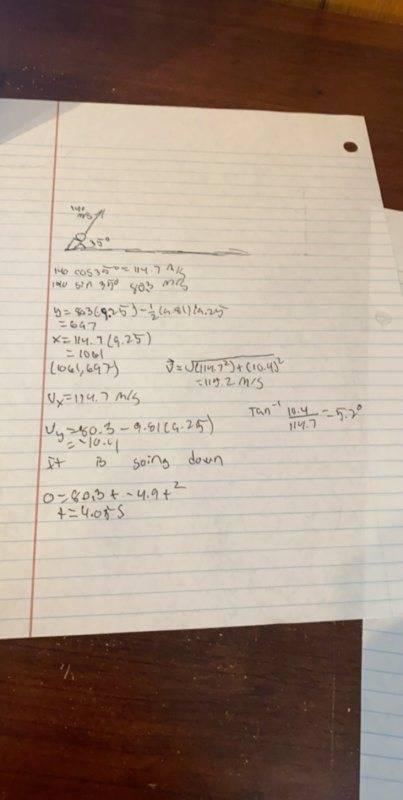 140 m/s
35°
140 cos 35° = 114.7 m/s
140 sin 35° 80.3 m/s
y = 803(9.25) - 1/2(9.81)(9.25
= 697
x = 114.7(9.25)
= 1061
(1061, 697)
V⃗ = √(114.7²) + (10.4)²
= 115.2 m/s
Vx = 114.7 m/s
Vy = 80.3 - 9.81(9.25)
= -10.4
Tan⁻¹ 10.4/114.7 = 5.2°
It is going down
0 = 80.3t - 4.9t²